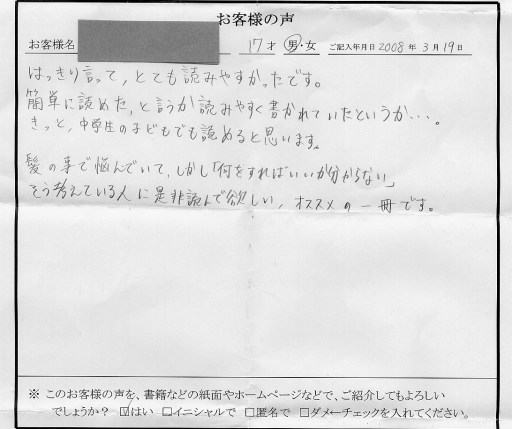 お客様の声
お客様名 17才 男・女 ご記入年月日 2008年 3月19日
はっきり言って、とても読みやすかったです。
簡単に読めた、と言うか読みやすく書かれていたというか…。
きっと、中学生の子どもでも読めると思います。
髪の事で悩んでいて、しかし「何をすればいいか分からない」
そう考えている人に是非読んで欲しい、オススメの一冊です。
※ このお客様の声を、書籍などの紙面やホームページなどで、ご紹介してもよろしい
でしょうか？ ☑はい □イニシャルで □匿名で □ダメーチェックを入れてください。